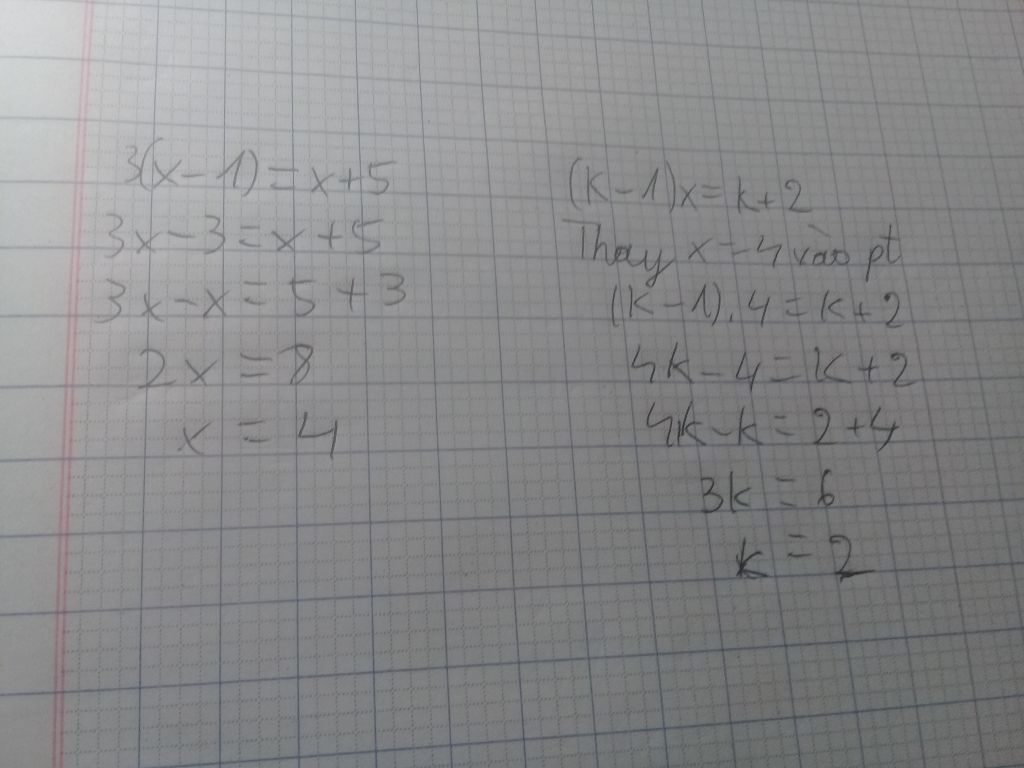 3(x-1)=x+5
3x-3=x+5
3x-x=5+3
2x=8
x=4
(k-1)x=k+2
Thay x=4 vào pt
(k-1).4=k+2
4k-4=k+2
4k-k=2+4
3k=6
k=2